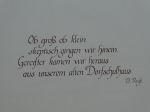 Ob groß ob klein
skeptisch gingen wir hinein
Gereifter kamen wir heraus
aus unserem alten Dorfschulhaus